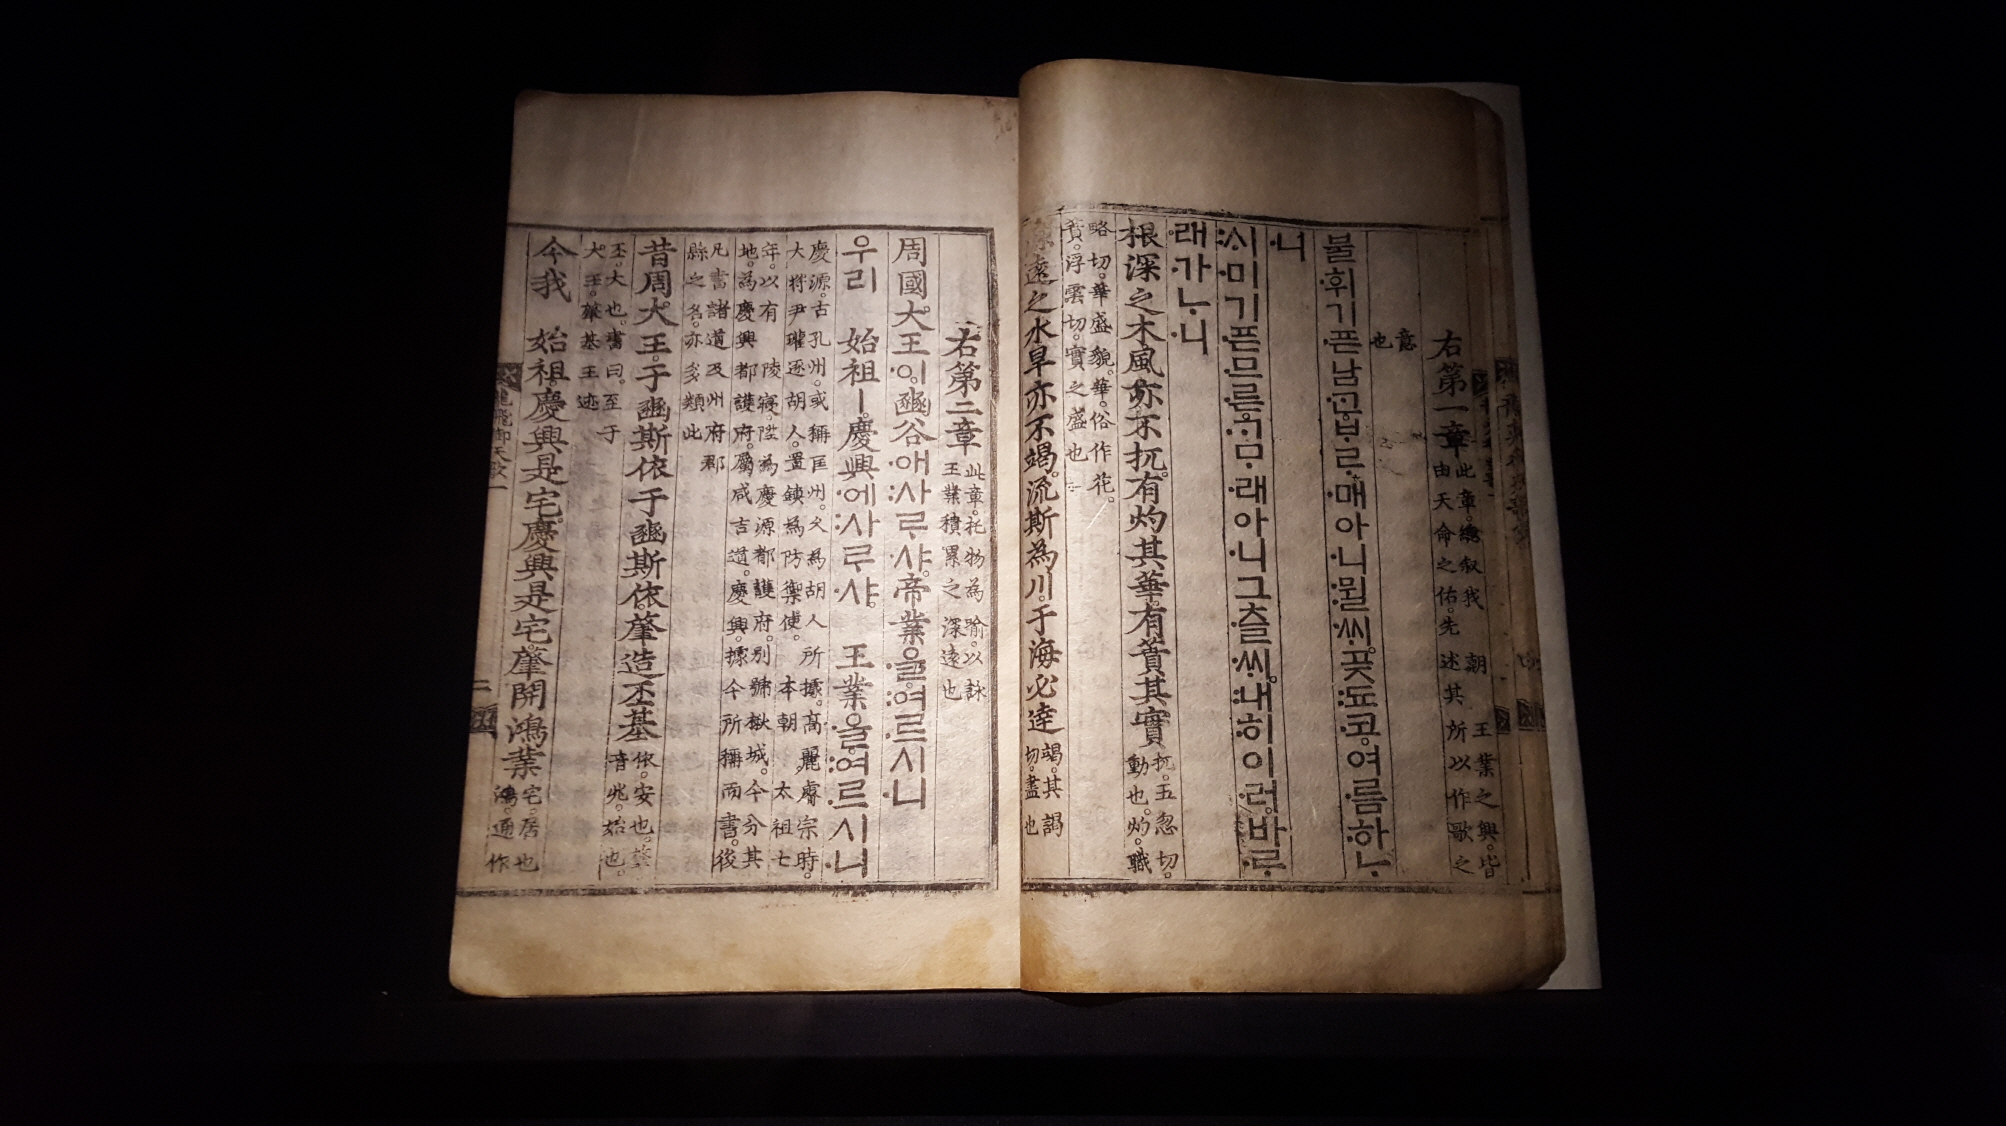 右第一章
此章。總叙我 朝 王業之興。皆
由天命之佑。先述其所以作歌之
意
也
불휘기픈남ᄀᆞᆫᄇᆞᄅᆞ매아니뮐ᄊᆡ。곶됴코。여름하ᄂᆞ
니
ᄉᆡ미기픈므른ᄀᆞᄆᆞ래아니그츨ᄊᆡ。내히이러。바ᄅᆞ
래가ᄂᆞ니
根深之木風亦不扤。有灼其華。有蕡其實
扤。五忽切。
動也。灼。職
略切。華盛貌。華。俗作花。
蕡。浮雲切。實之盛也
源遠之水旱亦不竭。流斯為川。于海必達
竭。其謁
切。盡也
右第二章
此章。托物為喩。以詠
王業積累之深遠也
周國大王이。豳谷애사ᄅᆞ샤。帝業을。여르시니
우리 始祖ㅣ慶興에사ᄅᆞ샤。 王業을。여르시니
慶源。古孔州。或稱匡州。久為胡人所據。高麗睿宗時。
大將尹瓘逐胡人。置鎮為防禦使。本朝 太祖七
年。以有 陵寢。陞為慶源都護府。別號楸城。今分其
地。為慶興都護府。屬咸吉道。慶興。據今所稱而書。後
凡書諸道及州府郡
縣之名。亦多類此
昔周大王。于豳斯依于豳斯依。肇造丕基
依。安也。肇。
音兆。始也。
丕。大也。書曰。至于
大王。肇基王迹
今我 始祖。慶興是宅。慶興是宅。肇開鴻業
宅。居也
鴻。通作
龍飛御天歌一
二